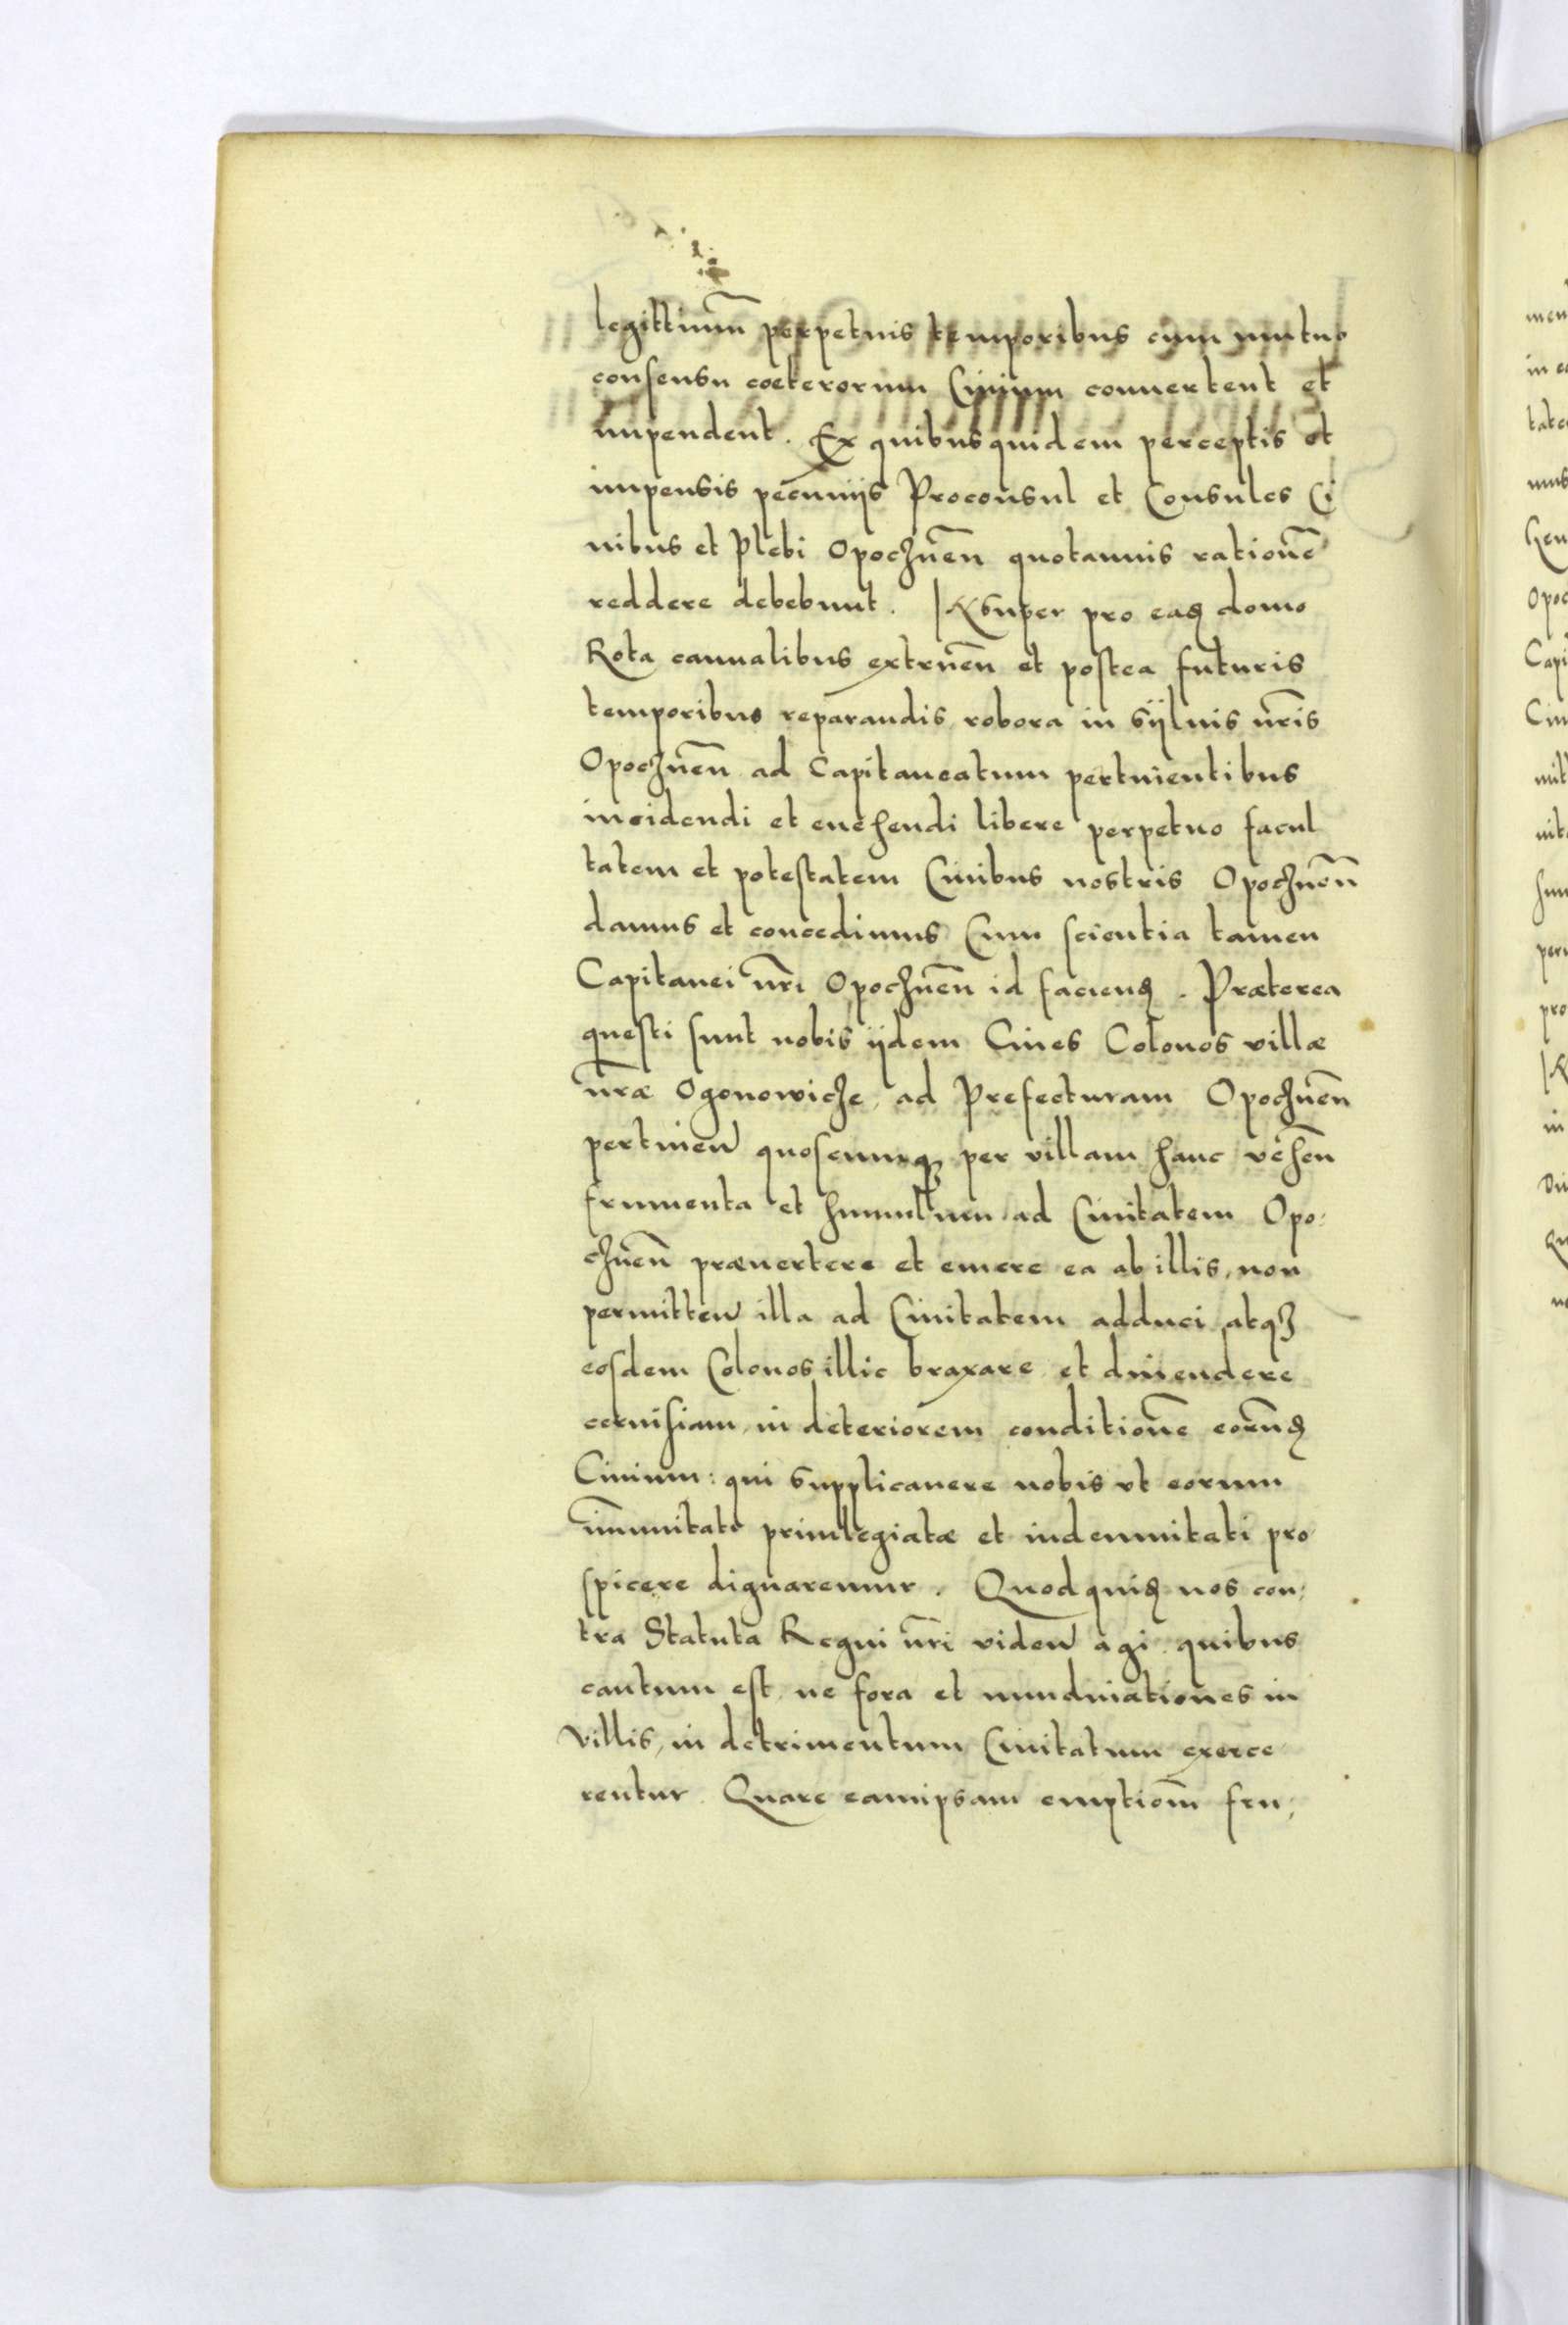 legittimū perpetuis temporibus cum mutuo
consensu coeterorum Ciuium conuertent et
impendent. Ex quibusquidem perceptis et
impensis pecunijs Proconsul et Consules Ci
uibus et Plebi Opocznen̄ quotannis rationē
reddere debebunt. Insuper pro eadem domo
Rota cannalibus extruen̄ et postea futuris
temporibus reparandis robora in sÿluis nr̄is
Opocznen̄ ad Capitaneatum pertinentibus
incidendi et euehendi libere perpetuo facul
tatem et potestatem Ciuibus nostris Opocznen̄
damus et concedimus Cum scientia tamen
Capitanei nr̄i Opocznen̄ id faciend. Præterea
questi sunt nobis ijdem Ciues Colonos villæ
nr̄æ Ogonowicze, ad Prefecturam Opocznen̄
pertinen̄ quoscunque per villam hanc vehen̄
frumenta et humulum ad Ciuitatem Opo:
cznen̄ præuertere et emere ea ab illis, non
permitten̄ illa ad Ciuitatem adduci, atqz
eosdem Colonos illic braxare et diuendere
ceruisiam, in deteriorem conditionē eorund
Ciuium: qui supplicauere nobis vt eorum
im̄unitate priuilegiatæ et indemnitati pro
spicere dignaremur. Quodquid nos con:
tra Statuta Regni nr̄i viden̄ agi quibus
cautum est ne fora et nundinationes in
Villis, in detrimentum Ciuitatum exerce
rentur. Quare eamipsam emptionē fru: